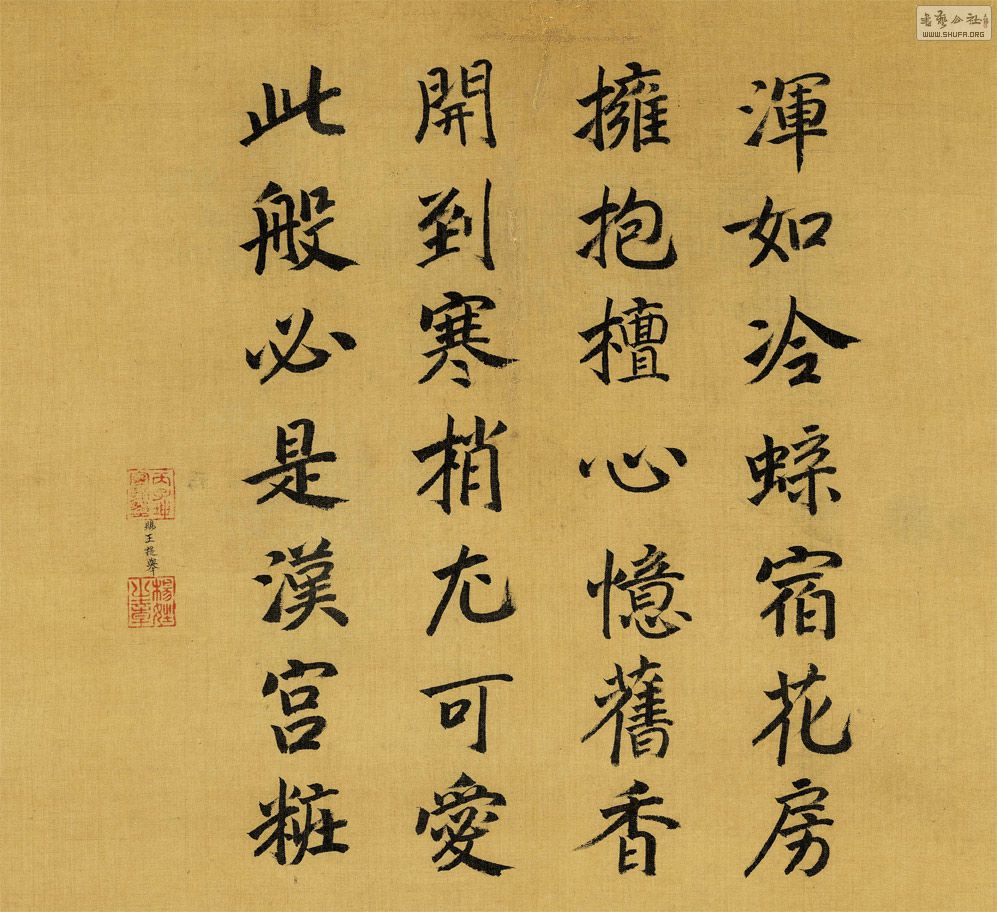 渾如冷蝶宿花房
擁抱檀心憶舊香
開到寒梢尤可愛
此般必是漢宮粧
賜王提舉
楊姓之章
WWW.SHUFA.ORG